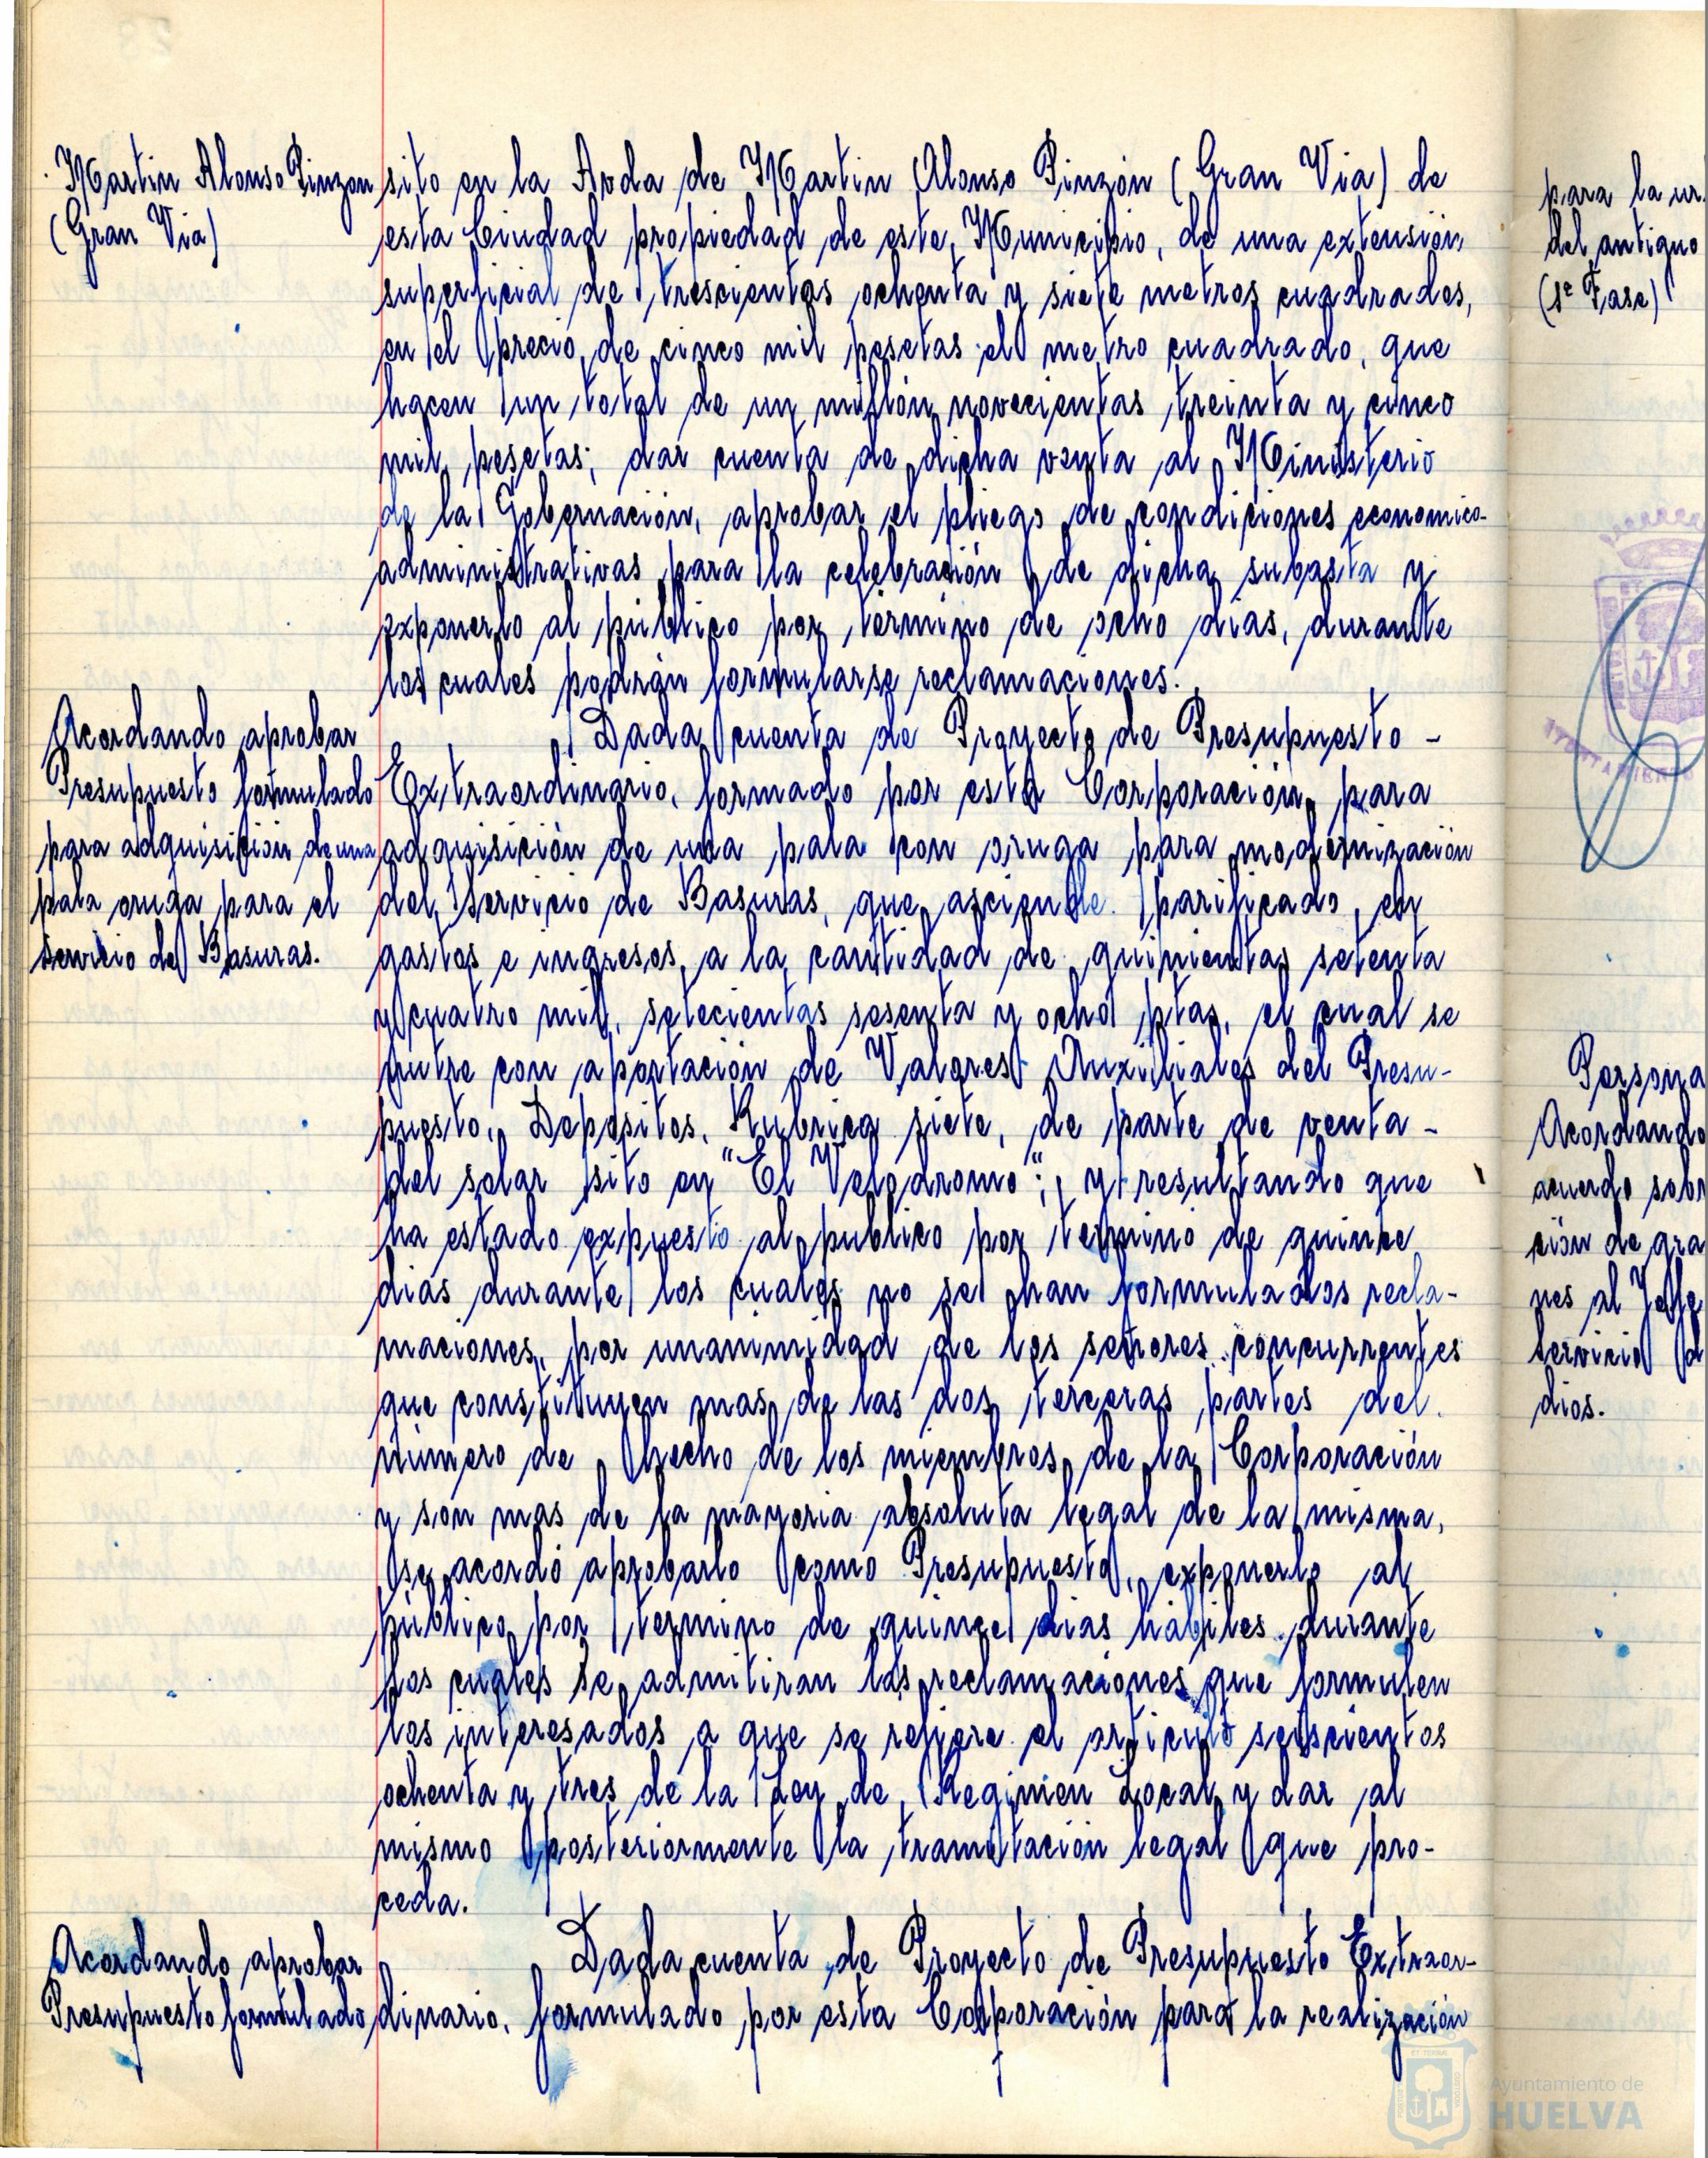 Martin Alonso Pinzon
(Gran Via)
sito en la Avda de Martin Alonso Pinzón (Gran Via) de
esta Ciudad propiedad de este Municipio, de una extensión
superficial de trescientas ochenta y siete metros cuadrados,
en el precio de cinco mil pesetas el metro cuadrado, que
hacen un total de un millón novecientas treinta y cinco
mil pesetas; dar cuenta de dicha venta al Ministerio
de la Gobernación, aprobar el pliego de condiciones economico-
administrativas para la celebración de dicha subasta y
exponerlo al público por término de ocho dias, durante
los cuales podrán formularse reclamaciones.
Acordando aprobar
Presupuesto formulado
para adquisición de una
pala oruga para el
Servicio de Basuras.
Dada cuenta de Proyecto de Presupuesto -
Extraordinario, formado por esta Corporación, para
adquisición de una pala con oruga para modernización
del Servicio de Basuras, que asciende parificado, en
gastos e ingresos, a la cantidad de quinientas setenta
y cuatro mil, setecientas sesenta y ocho ptas, el cual se
nutre con aportación de Valores Auxiliales del Presu-
puesto, Depositos, Rubrica siete, de parte de venta -
del solar sito en "El Velodromo"; y resultando que
ha estado expuesto al publico por termino de quince
dias durante los cuales no se han formulados recla-
maciones, por unanimidad de los señores concurrentes
que constituyen mas de las dos terceras partes del
número de hecho de los miembros de la Corporación
y son mas de la mayoria absoluta legal de la misma,
se acordó aprobarlo como Presupuesto, exponerlo al
público por termino de quince dias hábiles durante
los cuales se admitiran las reclamaciones que formulen
los interesados a que se refiere el articulo seiscientos
ochenta y tres de la Ley de Regimen Local y dar al
mismo posteriormente la tramitación legal que pro-
ceda.
Acordando aprobar
Presupuesto formulado
Dada cuenta de Proyecto de Presupuesto Extraor-
dinario, formulado por esta Corporación para la realización
para la ur
del antiguo
(1ª Fase)
Persona
Acordando
acuerdo sobr
ción de gra
nes al Jefe
Servicio d
dios.
Ayuntamiento de
HUELVA